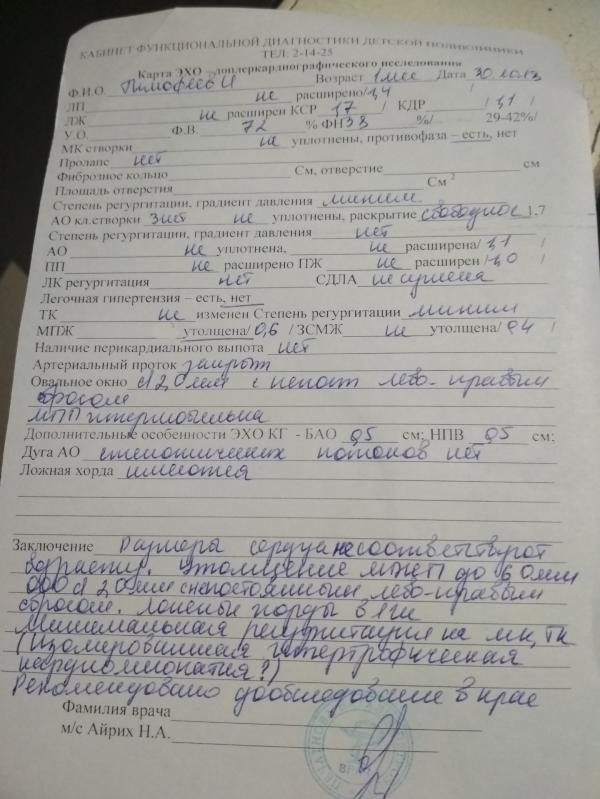 КАБИНЕТ ФУНКЦИОНАЛЬНОЙ ДИАГНОСТИКИ ДЕТСКОЙ ПОЛИКЛИНИКИ
ТЕЛ: 2-14-25
Карта ЭХО – допплеркардиографического исследования
Ф.И.О. Тимофеев И Возраст 1 мес Дата 30.10.13
ЛП не расширено/1,4 /
ЛЖ не расширен КСР 17 / КДР / 1,1 /
У.О. Ф.В. 72 % ФИ 38 %/ 29-42%/
МК створки не уплотнены, противофаза – есть, нет
Пролапс нет
Фиброзное кольцо См, отверстие см
Площадь отверстия См 2
Степень регургитации, градиент давления миним
АО кл.створки 3 шт не уплотнены, раскрытие свободное 1.7
Степень регургитации, градиент давления нет
АО не уплотнена, не расширена/ 1,1 /
ПП не расширено ПЖ не расширен /1,0 /
ЛК регургитация нет СДЛА
Легочная гипертензия – есть, нет
ТК не изменен Степень регургитации миним
МПЖ утолщена/ 0,6 / ЗСМЖ не утолщена/ 0,4 /
Наличие перикардиального выпота нет
Артериальный проток закрыт
Овальное окно d 2,0 мм с непост лево-правым
сбросом
МПП гипермобильна
Дополнительные особенности ЭХО КГ - БАО 0,5 см; НПВ 0,5 см;
Дуга АО стенотических потоков нет
Ложная хорда имеются
Заключение Размеры сердца не соответствуют
возрасту. Утолщение МЖП до 6,0 мм
ООО d 2,0 мм с непостоянным лево-правым
сбросом. Ложные хорды в ЛЖ
Минимальная регургитация на МК, ТК
(изолированная гипертрофическая
кардиомиопатия?)
Рекомендовано дообследование в крае
Фамилия врача
м/с Айрих Н.А.